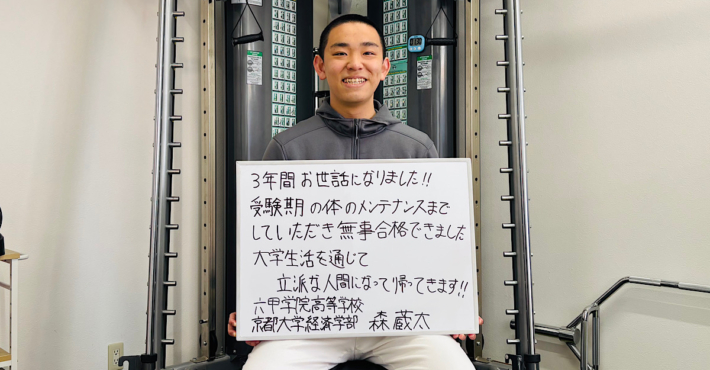 3年間お世話になりました!!
受験期の体のメンテナンスまで
していただき無事合格できました
大学生活を通じて
立派な人間になって帰ってきます!!
六甲学院高等学校
京都大学経済学部 森蔵太